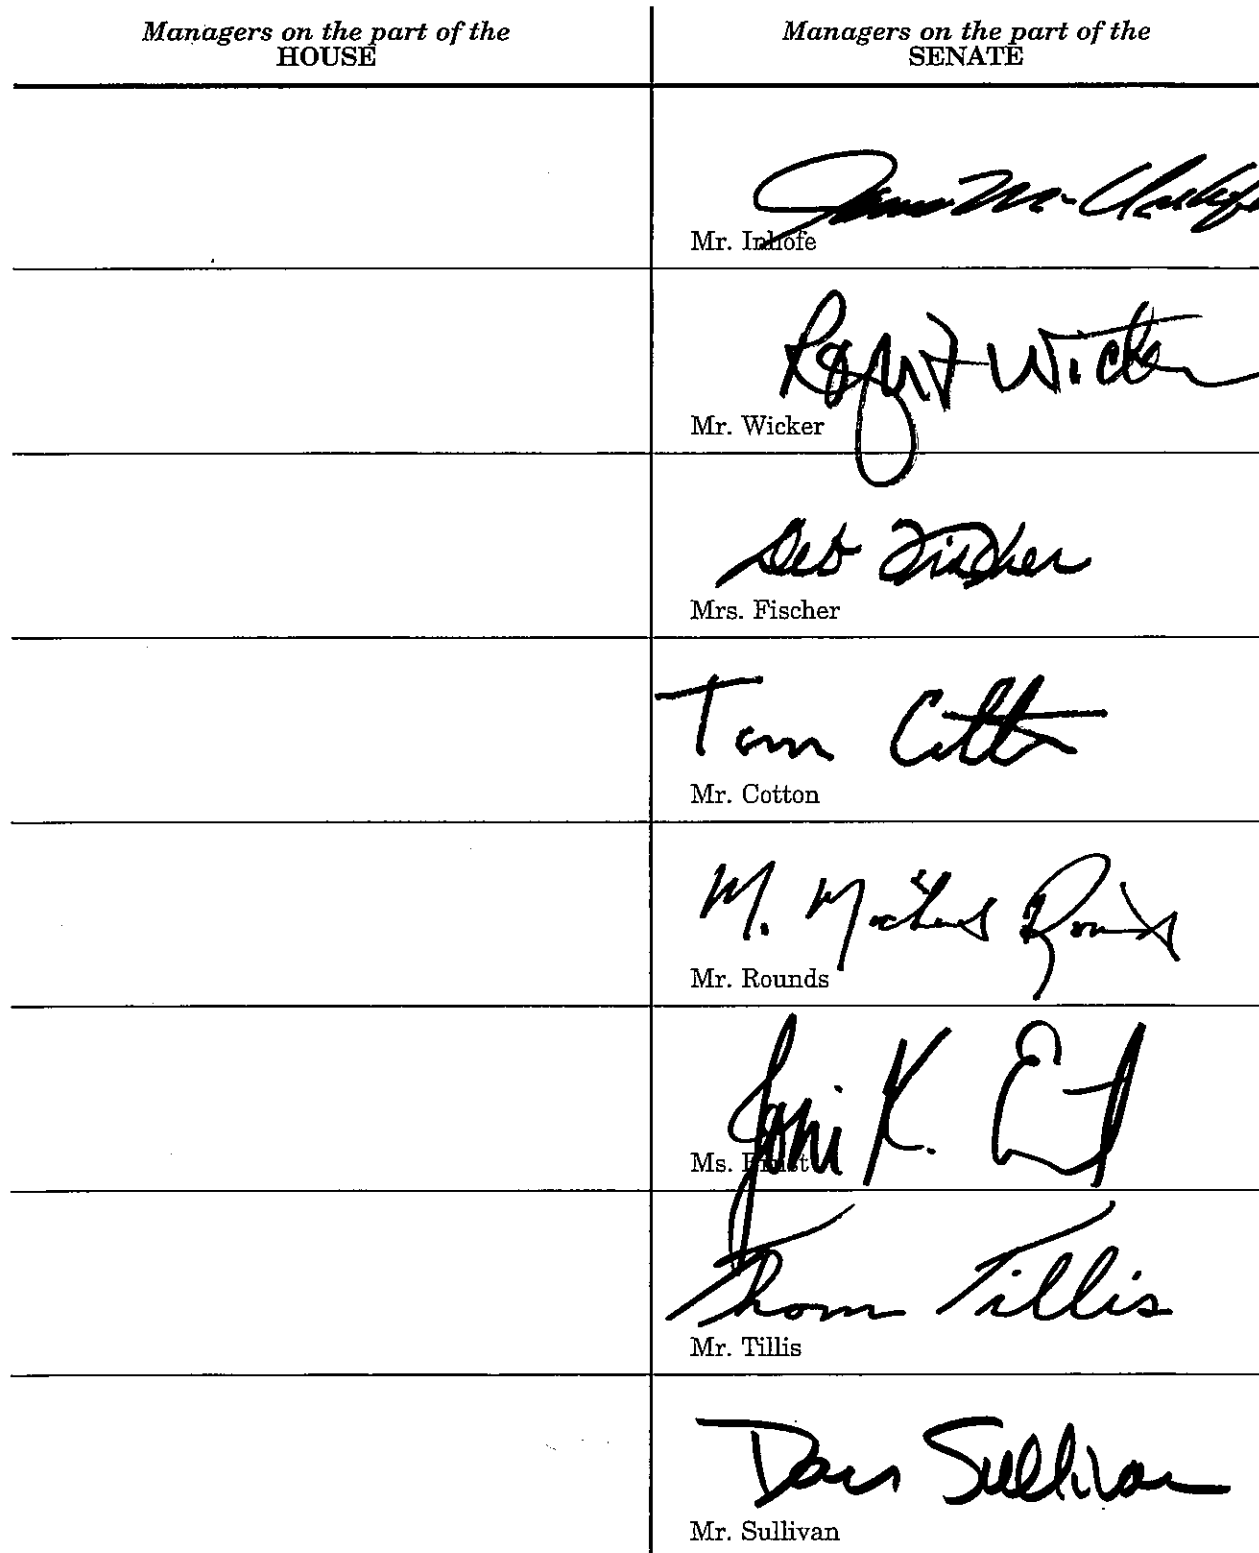 Managers on the part of the
HOUSE
Managers on the part of the
SENATE
James M. Inhofe
Mr. Inhofe
Roger F Wicker
Mr. Wicker
Deb Fischer
Mrs. Fischer
Tom Cotton
Mr. Cotton
M. Michael Rounds
Mr. Rounds
Joni K. Ernst
Ms. Ernst
Thom Tillis
Mr. Tillis
Dan Sullivan
Mr. Sullivan